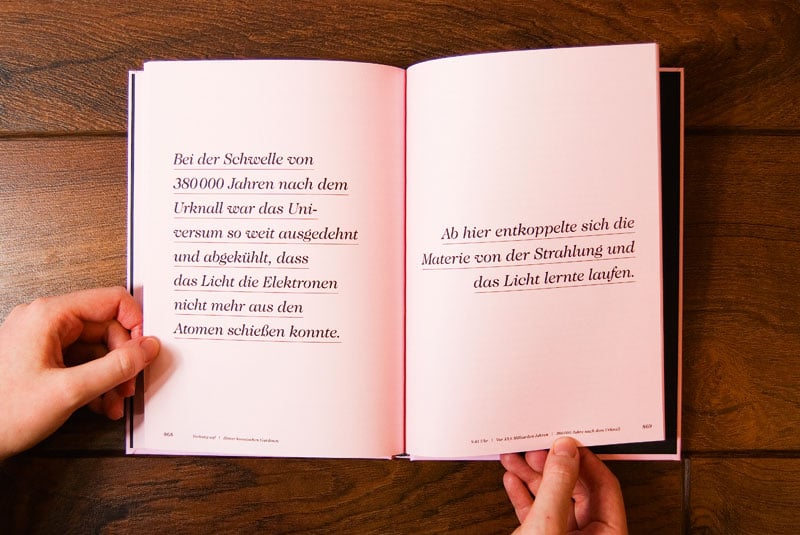 Bei der Schwelle von
380 000 Jahren nach dem
Urknall war das Uni-
versum so weit ausgedehnt
und abgekühlt, dass
das Licht die Elektronen
nicht mehr aus den
Atomen schießen konnte.
868
Ab hier entkoppelte sich die
Materie von der Strahlung und
das Licht lernte laufen.
Vor 13,8 Milliarden Jahren | 380 000 Jahre nach dem Urknall
869